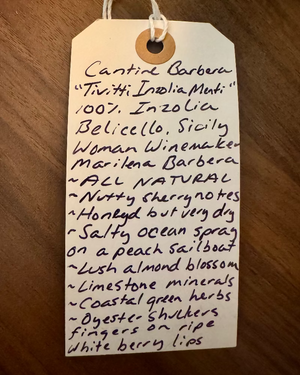 Cantine Barbera
"Tivitti Inzolia Menfi"
100% Inzolia
Belicello, Sicily
Woman Winemaker
Marilena Barbera
~ALL NATURAL
~Nutty sherry notes
~Honeyd but very dry
~Salty ocean spray
on a peach sailboat
~Lush almond blossom
~Limestone minerals
~Coastal green herbs
~Oyester shuckers
fingers on ripe
white berry lips